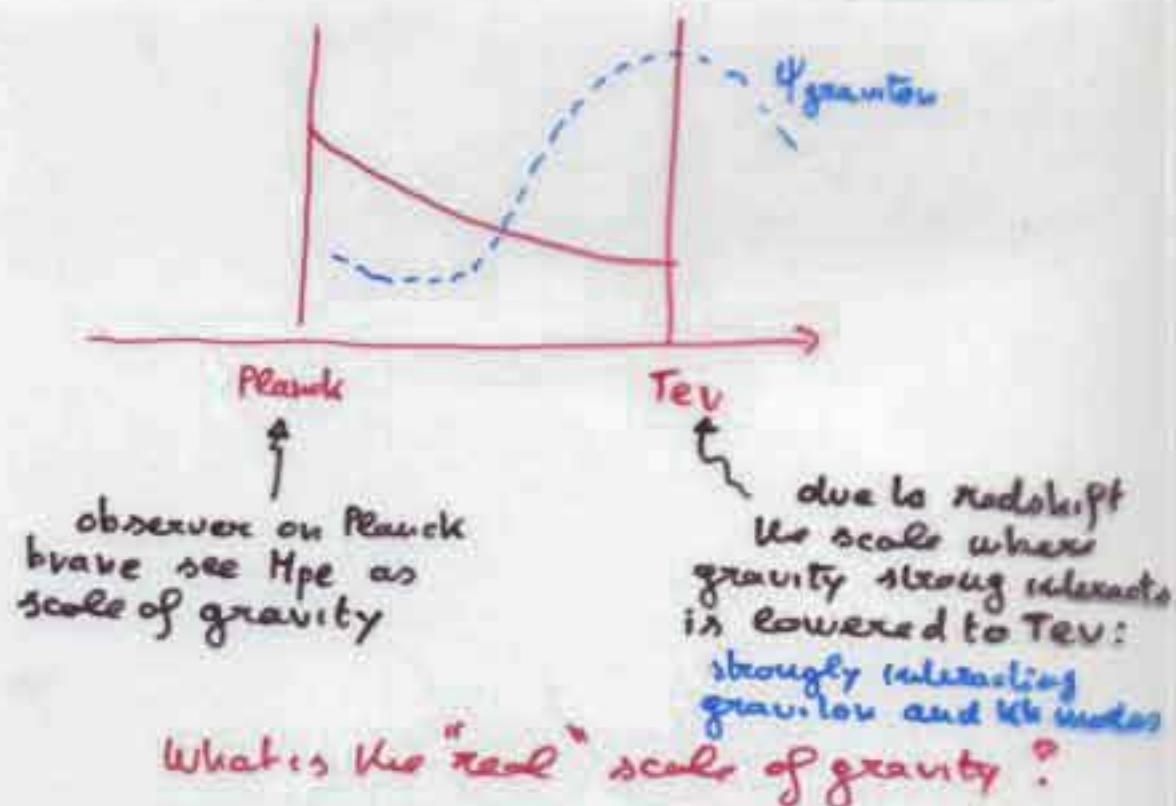 Ψgraviton
Planck
Tev
observer on Planck
brane see Mpe as
scale of gravity
due to redshift
the scale where
gravity strong interacts
is lowered to Tev:
strongly interacting
graviton and KK modes
What is the "real" scale of gravity?